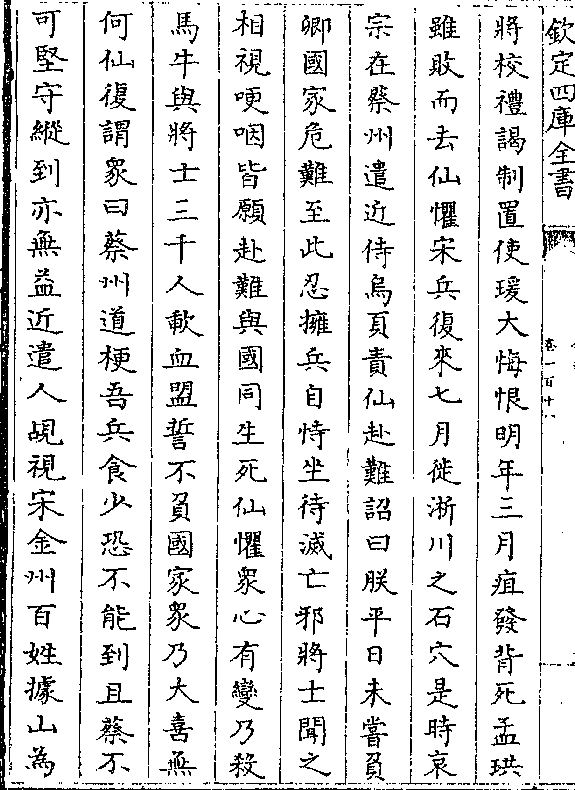 欽定四庫全書
卷一百十八
將校禮謁制置使瑗大悔恨明年三月疽發背死孟珙
雖敗而去仙懼宋兵復來七月徙淅川之石穴是時哀
宗在蔡州遣近侍烏頁責仙赴難詔曰朕平日未嘗負
卿國家危難至此忍擁兵自恃坐待滅亡邪將士聞之
相視哽咽皆願赴難與國同生死仙懼衆心有變乃殺
馬牛與將士三千人歃血盟誓不負國家衆乃大喜無
何仙復謂衆曰蔡州道梗吾兵食少恐不能到且蔡不
可堅守縱到亦無益近遣人覘視宋金州百姓據山為